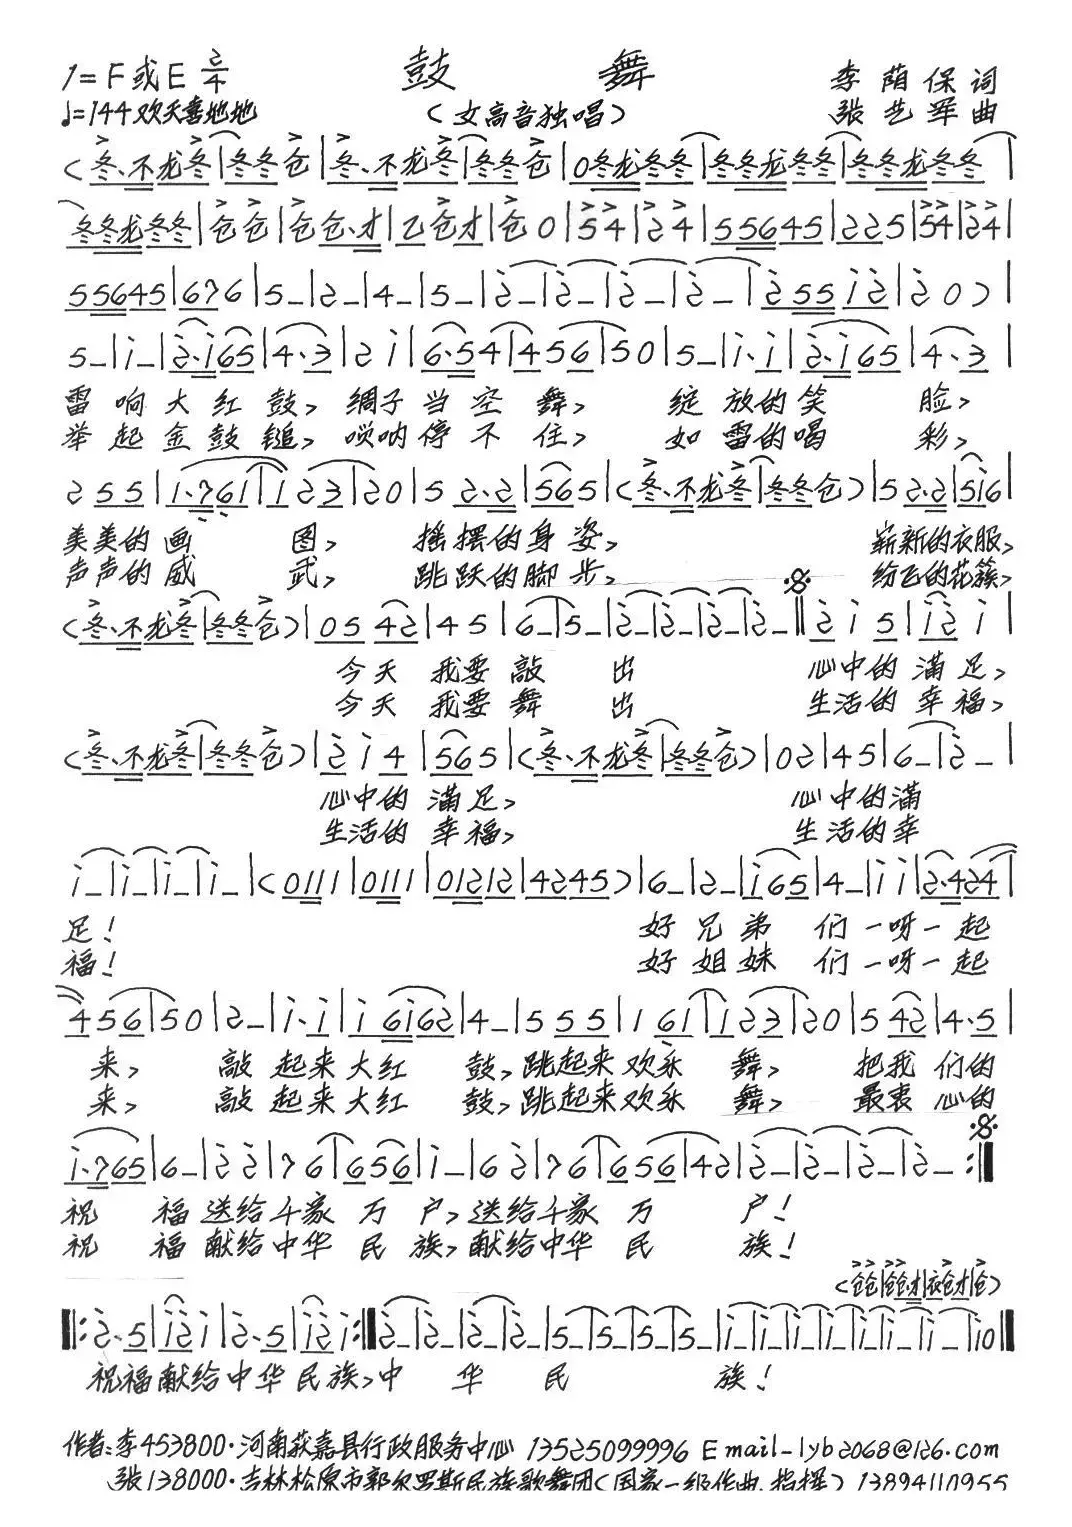 1=F或E 2/4 鼓 舞 李荫保词
♩=144 欢天喜地地 (女高音独唱) 张艺军曲
(冬、不龙冬|冬冬仓|冬、不龙冬|冬冬仓|0冬龙冬冬|冬冬龙冬冬|冬冬龙冬冬|
冬冬龙冬冬|仓仓|仓仓·才|乙仓才|仓0|54|24|55645|225|54|24|
55645|676|5–|2–|4–|5–|2–|2–|2–|2–|255 12|20)|
5–|1–|2·165|4·3|21|6·54|456|50|5–|1·1|2·165|4·3|
雷响大红鼓, 绸子当空舞, 绽放的笑脸,
举起金鼓锤, 唢呐停不住, 如雷的喝彩,
255|1·761|123|20|52·2|565|(冬、不龙冬|冬冬仓)|52·2|516|
美美的画图, 摇摆的身姿, 崭新的衣服,
声声的威武, 跳跃的脚步, 纷飞的花簇,
(冬、不龙冬|冬冬仓)|0542|45|6–|5–|2–|2–|2–|2–‖215|121|
今天我要敲出 心中的满足,
今天我要舞出 生活的幸福,
(冬、不龙冬|冬冬仓)|214|565|(冬、不龙冬|冬冬仓)|02|45|6–|2–|
心中的满足, 心中的满
生活的幸福, 生活的幸
1–|1–|1–|1–|(0111|0111|01212|4245)|6–|2–|165|4–|11|2·424|
足! 好兄弟们一呀一起
福! 好姐妹们一呀一起
456|50|2–|1·1|1 6162|4–|555|161|123|20|542|4·5|
来, 敲起来大红鼓,跳起来欢乐舞, 把我们的
来, 敲起来大红鼓,跳起来欢乐舞, 最衷心的
1·765|6–|22|76|656|1–|62|76|656|42|2–|2–|2–|2–:‖
祝福送给千家万户,送给千家万户!
祝福献给中华民族,献给中华民族!
(仓仓|仓仓·才|衣仓才|仓)
‖:2·5|121|2·5|121:‖2–|2–|2–|2–|5–|5–|5–|5–|1–|1–|1–|1–|1–|1–|1–|10‖
祝福献给中华民族,中华民族!
作者:李453800·河南获嘉县行政服务中心 13525099996 Email-lyb2068@126.com
张138000·吉林松原市郭尔罗斯民族歌舞团(国家一级作曲、指挥) 13894110955